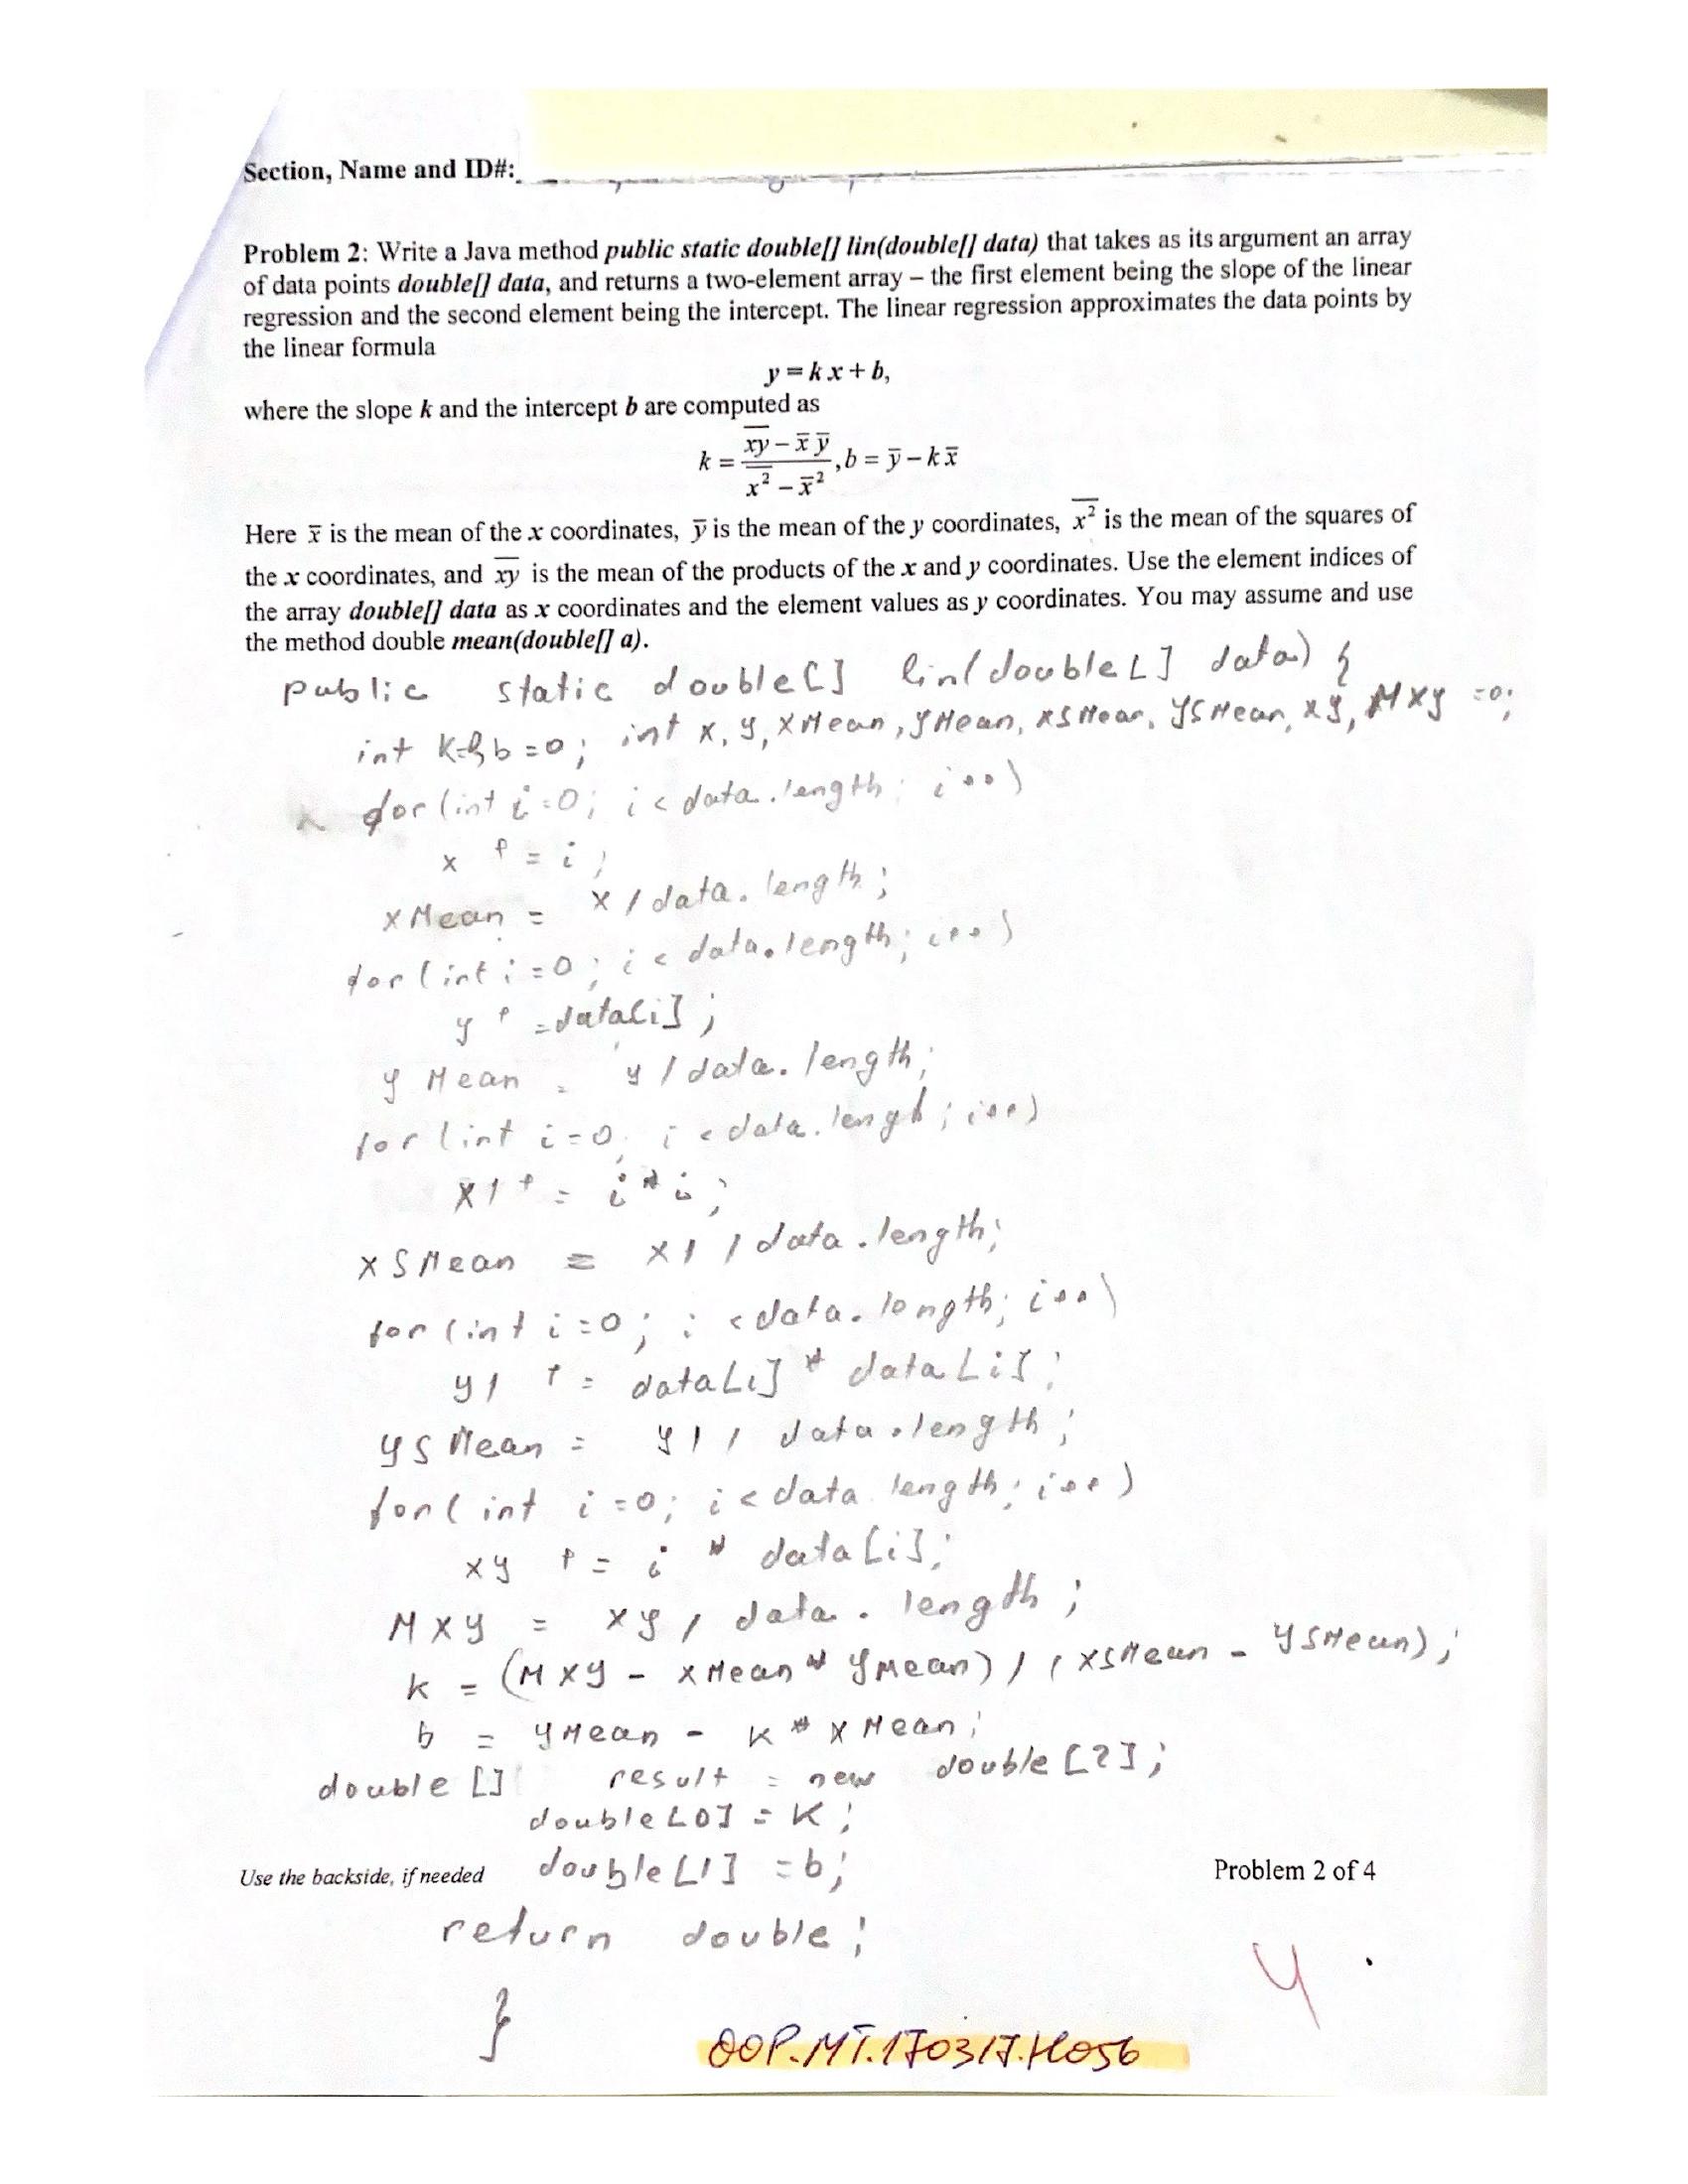 Section, Name and ID#:
Problem 2: Write a Java method public static double[] lin(double[] data) that takes as its argument an array
of data points double[] data, and returns a two-element array – the first element being the slope of the linear
regression and the second element being the intercept. The linear regression approximates the data points by
the linear formula
y = k x + b,
where the slope k and the intercept b are computed as
k = (x̅y̅ − x̄ ȳ) / (x̅²̅ − x̄²), b = ȳ − k x̄
Here x̄ is the mean of the x coordinates, ȳ is the mean of the y coordinates, x̅²̅ is the mean of the squares of
the x coordinates, and x̅y̅ is the mean of the products of the x and y coordinates. Use the element indices of
the array double[] data as x coordinates and the element values as y coordinates. You may assume and use
the method double mean(double[] a).
public static double[] lin(double[] data) {
int k=0, b=0; int x, y, xMean, yMean, xSMean, ySMean, xy, Mxy =0;
for (int i=0; i < data.length; i++)
x += i;
xMean = x / data.length;
for (int i=0; i < data.length; i++)
y += data[i];
yMean = y / data.length;
for (int i=0; i < data.lengh; i++)
x1 += i*i;
xSMean = x1 / data.length;
for (int i=0; i < data.length; i++)
y1 += data[i] * data[i];
ySMean = y1 / data.length;
for (int i=0; i < data.length; i++)
xy += i * data[i];
Mxy = xy / data.length;
k = (Mxy - xMean * yMean) / (xSMean - ySMean);
b = yMean - k * xMean;
double [] result = new double [2];
double[0] = k;
double[1] = b;
Use the backside, if needed
Problem 2 of 4
return double;
}
4
OOP.MT.170317.H056